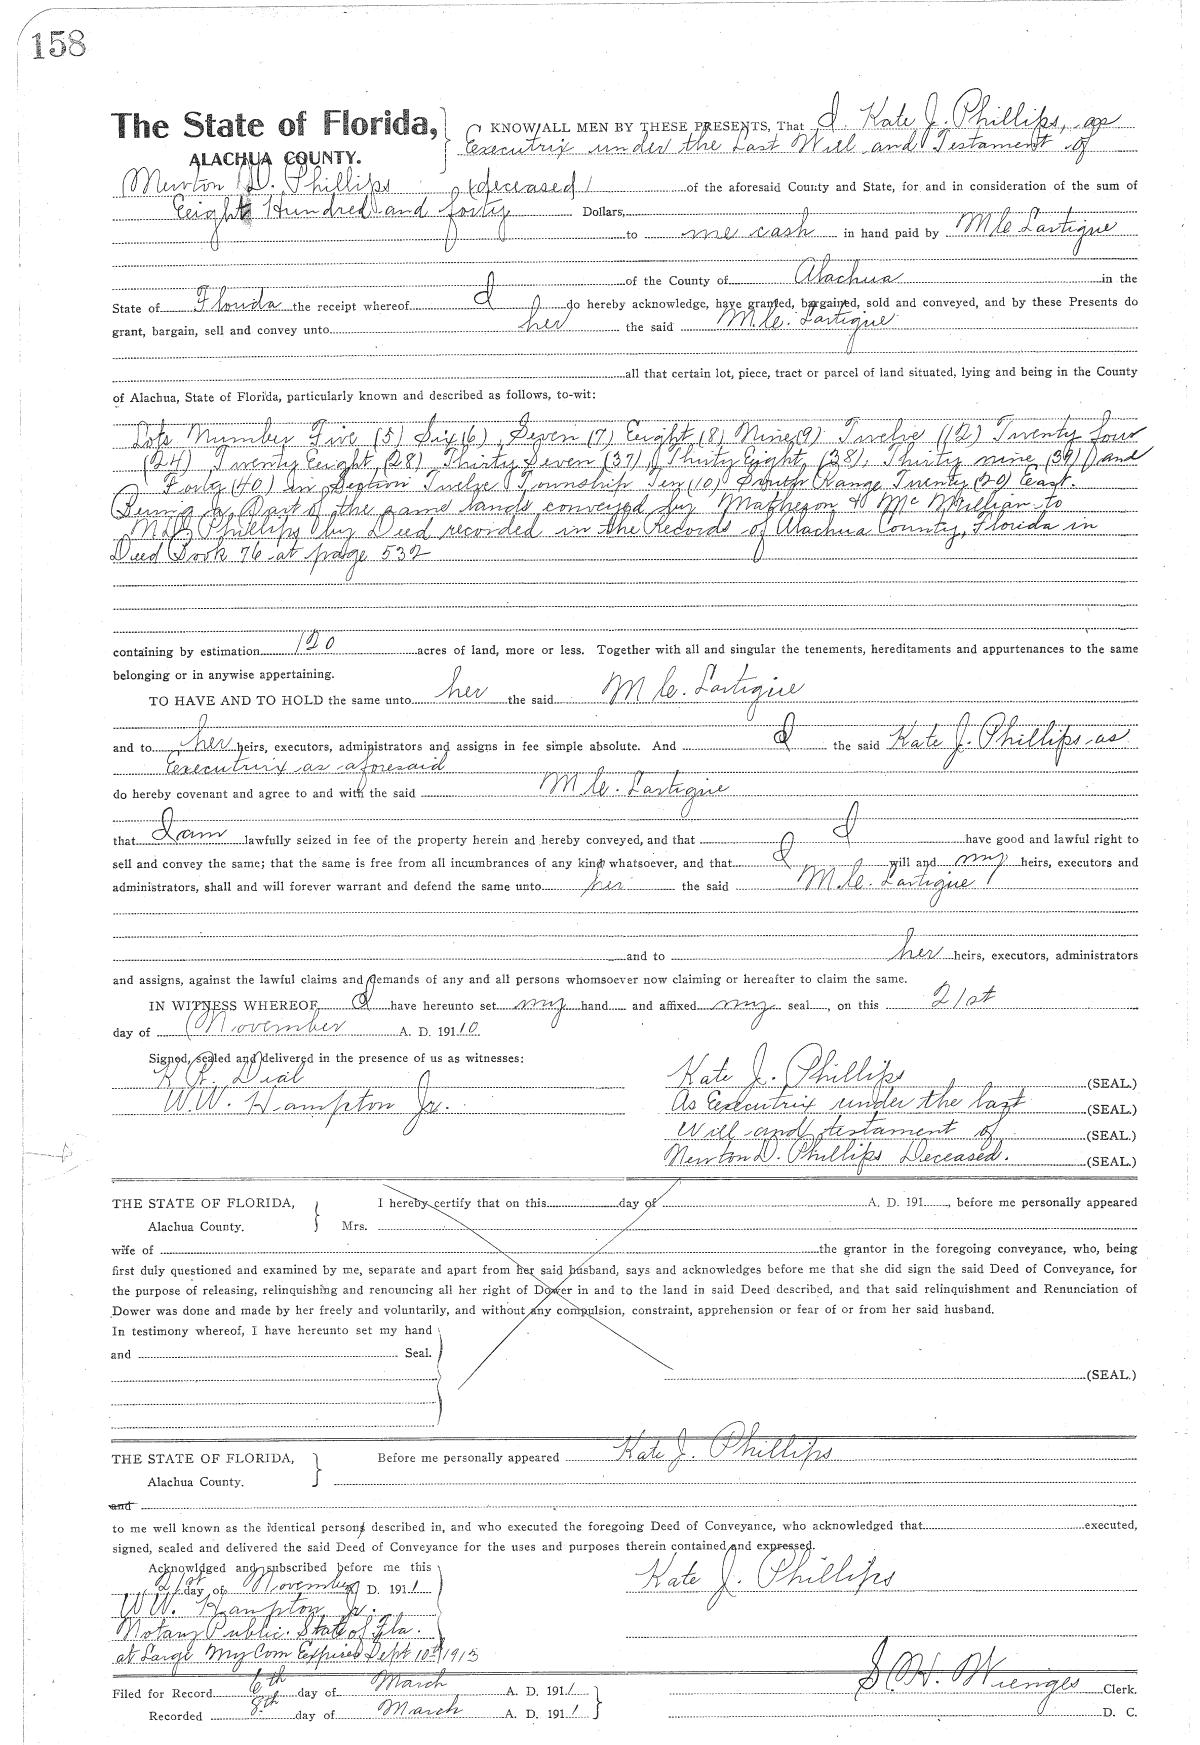 158
The State of Florida, KNOW ALL MEN BY THESE PRESENTS, That I Kate J. Phillips, as
ALACHUA COUNTY. Executrix under the Last Will and Testament of
Newton D. Phillips (deceased) of the aforesaid County and State, for and in consideration of the sum of
Eeight Hundred and forty Dollars,
to me cash in hand paid by M C Lartigue
of the County of Alachua in the
State of Florida the receipt whereof I do hereby acknowledge, have granted, bargained, sold and conveyed, and by these Presents do
grant, bargain, sell and convey unto her the said M. C. Lartigue
all that certain lot, piece, tract or parcel of land situated, lying and being in the County
of Alachua, State of Florida, particularly known and described as follows, to-wit:
Lots Number Five (5) Six (6) Seven (7) Eeight (8) Nine (9) Twelve (12) Twenty four
(24) Twenty Eeight (28) Thirty Seven (37) Thirty Eight (38), Thirty nine (39) and
Forty (40) in Section Twelve Township Ten (10) South Range Twenty (20) East.
Being a Part of the same lands conveyed by Matheson & McMillian to
N D Phillips by Deed recorded in the Records of Alachua County, Florida in
Deed Book 76 at page 532
containing by estimation 120 acres of land, more or less. Together with all and singular the tenements, hereditaments and appurtenances to the same
belonging or in anywise appertaining.
TO HAVE AND TO HOLD the same unto her the said M C. Lartigue
and to her heirs, executors, administrators and assigns in fee simple absolute. And I the said Kate J. Phillips as
Executrix as aforesaid
do hereby covenant and agree to and with the said M C. Lartigue
that I am lawfully seized in fee of the property herein and hereby conveyed, and that I have good and lawful right to
sell and convey the same; that the same is free from all incumbrances of any kind whatsoever, and that I will and my heirs, executors and
administrators, shall and will forever warrant and defend the same unto her the said M C. Lartigue
and to her heirs, executors, administrators
and assigns, against the lawful claims and demands of any and all persons whomsoever now claiming or hereafter to claim the same.
IN WITNESS WHEREOF, I have hereunto set my hand and affixed my seal, on this 21st
day of November A. D. 1910
Signed, sealed and delivered in the presence of us as witnesses:
K R. Dial Kate J. Phillips (SEAL.)
W.W. Hampton Jr. As Executrix under the last (SEAL.)
Will and testament of (SEAL.)
Newton D. Phillips Deceased. (SEAL.)
THE STATE OF FLORIDA, I hereby certify that on this day of A. D. 191 , before me personally appeared
Alachua County. Mrs.
wife of the grantor in the foregoing conveyance, who, being
first duly questioned and examined by me, separate and apart from her said husband, says and acknowledges before me that she did sign the said Deed of Conveyance, for
the purpose of releasing, relinquishing and renouncing all her right of Dower in and to the land in said Deed described, and that said relinquishment and Renunciation of
Dower was done and made by her freely and voluntarily, and without any compulsion, constraint, apprehension or fear of or from her said husband.
In testimony whereof, I have hereunto set my hand
and Seal.
(SEAL.)
THE STATE OF FLORIDA, Before me personally appeared Kate J. Phillips
Alachua County.
and
to me well known as the identical persons described in, and who executed the foregoing Deed of Conveyance, who acknowledged that executed,
signed, sealed and delivered the said Deed of Conveyance for the uses and purposes therein contained and expressed.
Acknowldged and subscribed before me this Kate J. Phillips
21st day of November A. D. 1911
W.W. Hampton, Jr.
Notary Public. State of Fla.
at Large My Com Expires Sept 10th 1913
Filed for Record 6th day of March A. D. 1911 S. H. Wienges Clerk.
Recorded 8th day of March A. D. 1911 D. C.